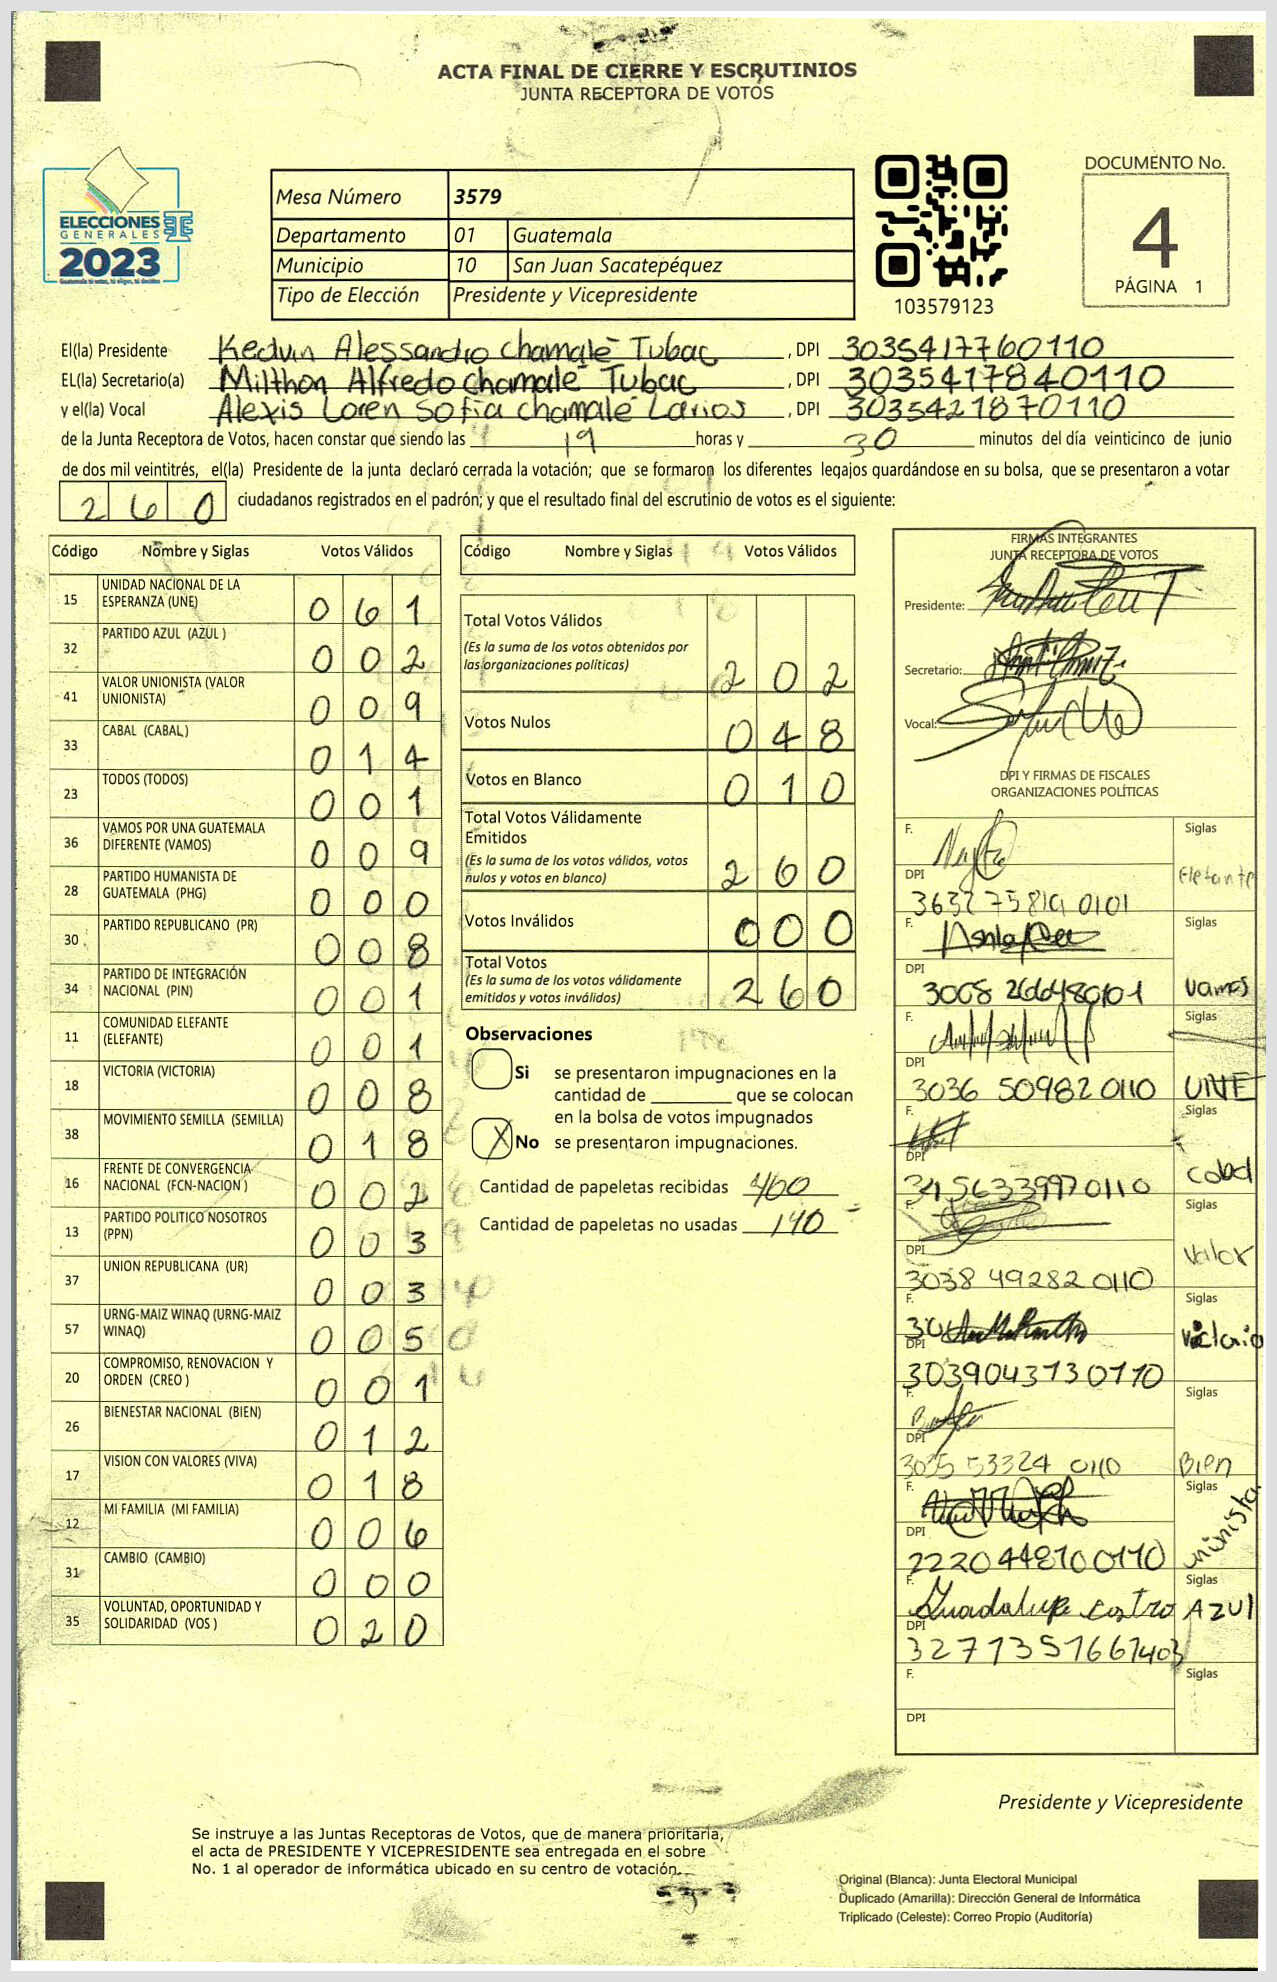 ACTA FINAL DE CIERRE Y ESCRUTINIOS
JUNTA RECEPTORA DE VOTOS
ELECCIONES
GENERALES
2023
Mesa Número 3579
Departamento 01 Guatemala
Municipio 10 San Juan Sacatepéquez
Tipo de Elección Presidente y Vicepresidente
103579123
DOCUMENTO No.
4
PÁGINA 1
El(la) Presidente Kedvin Alessandro Chamalé Tubac, DPI 3035417760110
EL(la) Secretario(a) Milthon Alfredo Chamalé Tubac, DPI 3035417840110
y el(la) Vocal Alexis Loren Sofia Chamalé Larios, DPI 3035421870110
de la Junta Receptora de Votos, hacen constar que siendo las 19 horas y 30 minutos del día veinticinco de junio
de dos mil veintitrés, el(la) Presidente de la junta declaró cerrada la votación; que se formaron los diferentes legajos quardándose en su bolsa, que se presentaron a votar
260 ciudadanos registrados en el padrón; y que el resultado final del escrutinio de votos es el siguiente:
Código Nombre y Siglas Votos Válidos
15 UNIDAD NACIONAL DE LA ESPERANZA (UNE) 061
32 PARTIDO AZUL (AZUL ) 002
41 VALOR UNIONISTA (VALOR UNIONISTA) 009
33 CABAL (CABAL) 014
23 TODOS (TODOS) 001
36 VAMOS POR UNA GUATEMALA DIFERENTE (VAMOS) 009
28 PARTIDO HUMANISTA DE GUATEMALA (PHG) 000
30 PARTIDO REPUBLICANO (PR) 008
34 PARTIDO DE INTEGRACIÓN NACIONAL (PIN) 001
11 COMUNIDAD ELEFANTE (ELEFANTE) 001
18 VICTORIA (VICTORIA) 008
38 MOVIMIENTO SEMILLA (SEMILLA) 018
16 FRENTE DE CONVERGENCIA NACIONAL (FCN-NACION ) 002
13 PARTIDO POLITICO NOSOTROS (PPN) 003
37 UNION REPUBLICANA (UR) 003
57 URNG-MAIZ WINAQ (URNG-MAIZ WINAQ) 005
20 COMPROMISO, RENOVACION Y ORDEN (CREO ) 001
26 BIENESTAR NACIONAL (BIEN) 012
17 VISION CON VALORES (VIVA) 018
12 MI FAMILIA (MI FAMILIA) 006
31 CAMBIO (CAMBIO) 000
35 VOLUNTAD, OPORTUNIDAD Y SOLIDARIDAD (VOS ) 020
Código Nombre y Siglas Votos Válidos
Total Votos Válidos
(Es la suma de los votos obtenidos por
las organizaciones politicas) 202
Votos Nulos 048
Votos en Blanco 010
Total Votos Válidamente
Emitidos
(Es la suma de los votos válidos, votos
nulos y votos en blanco) 260
Votos Inválidos 000
Total Votos
(Es la suma de los votos válidamente
emitidos y votos inválidos) 260
Observaciones
Si se presentaron impugnaciones en la
cantidad de ________ que se colocan
en la bolsa de votos impugnados
X No se presentaron impugnaciones.
Cantidad de papeletas recibidas 400
Cantidad de papeletas no usadas 140
FIRMAS INTEGRANTES
JUNTA RECEPTORA DE VOTOS
Presidente:
Secretario:
Vocal:
DPI Y FIRMAS DE FISCALES
ORGANIZACIONES POLÍTICAS
F. Siglas
DPI Elefante
F. Siglas
DPI
Vamos
F. Siglas
DPI
3036 50982 0110 UNE
F. Siglas
DPI
3456339970110
F. Siglas
DPI Valor
3038 49282 0110
F. Siglas
DPI
3039043730110
F. Siglas
DPI
3035 53324 0110 Bien
F. Siglas
DPI
2220448100110
F. Guadalupe Castro Siglas AZUL
DPI
3271351661403
F. Siglas
DPI
Presidente y Vicepresidente
Se instruye a las Juntas Receptoras de Votos, que de manera prioritaria,
el acta de PRESIDENTE Y VICEPRESIDENTE sea entregada en el sobre
No. 1 al operador de informática ubicado en su centro de votación.
Original (Blanca): Junta Electoral Municipal
Duplicado (Amarilla): Dirección General de Informática
Triplicado (Celeste): Correo Propio (Auditoría)